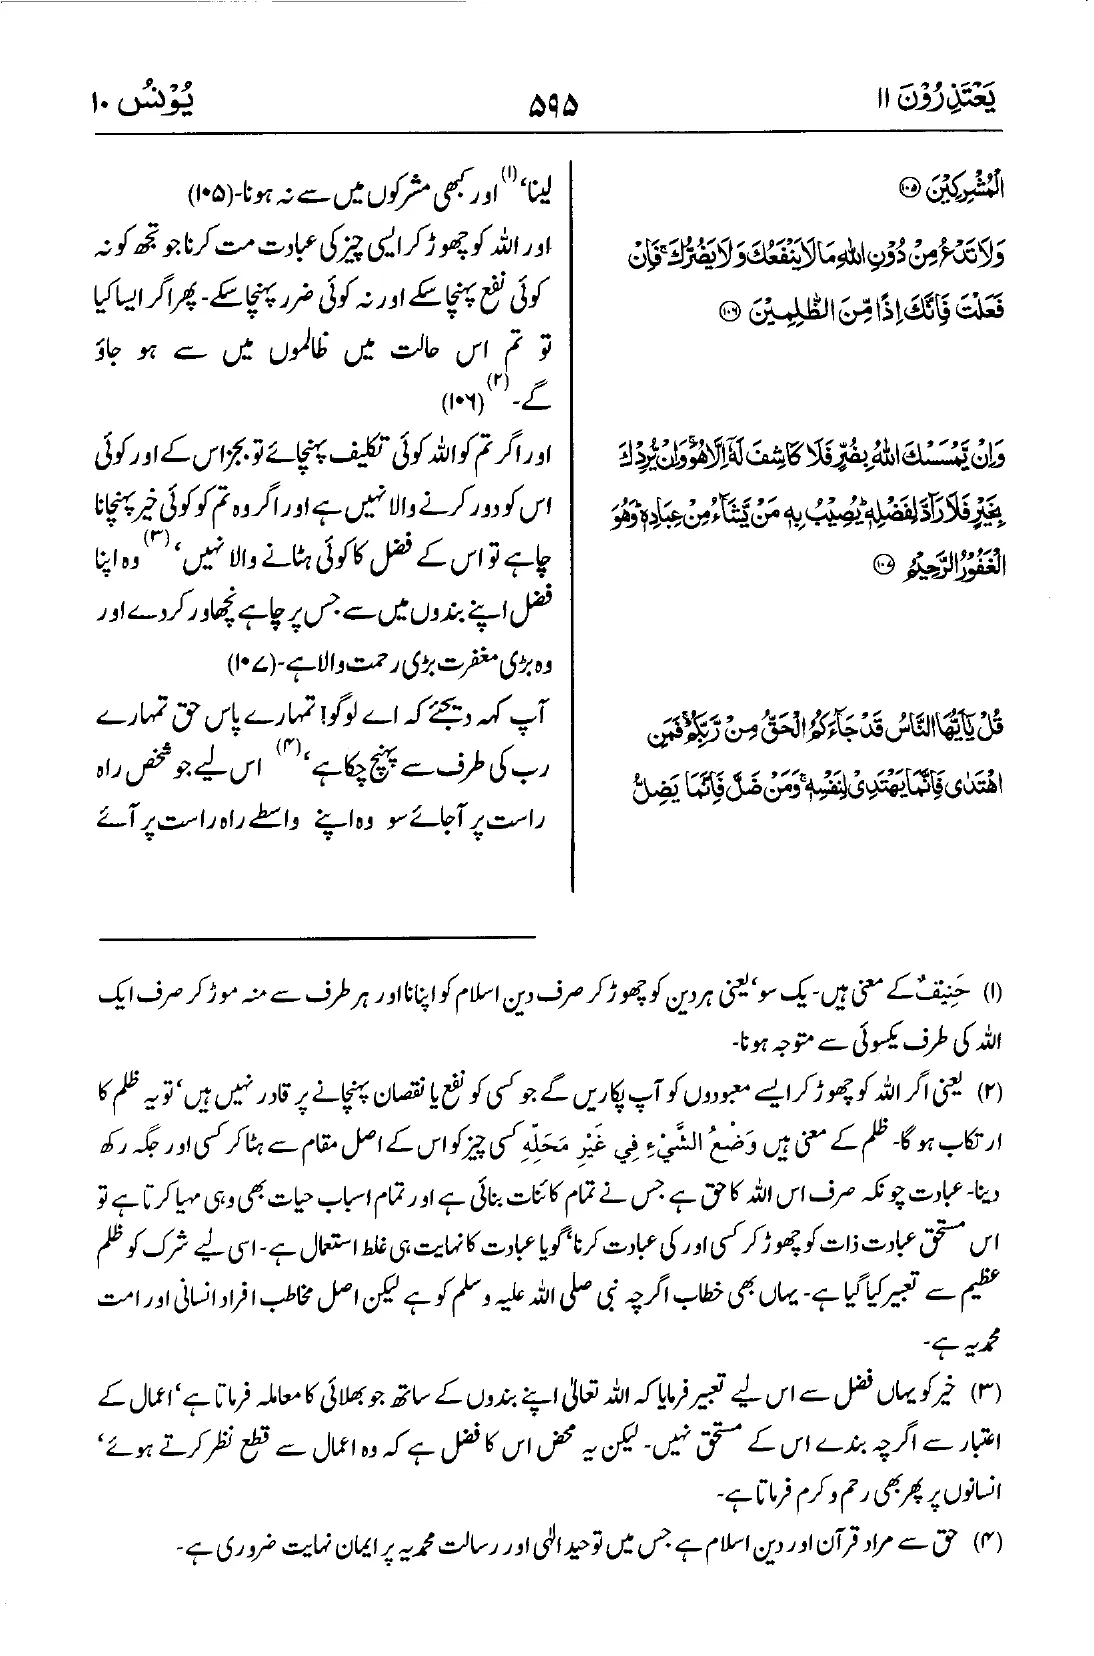 یَعْتَذِرُوْنَ ۱۱
۵۹۵
یُوْنُس ۱۰
الْمُشْرِكِیْنَ ۝۱۰۵
وَلَا تَدْعُ مِنْ دُوْنِ اللّٰهِ مَا لَا یَنْفَعُكَ وَلَا یَضُرُّكَ ۚ فَاِنْ
فَعَلْتَ فَاِنَّكَ اِذًا مِّنَ الظّٰلِمِیْنَ ۝۱۰۶
وَاِنْ یَّمْسَسْكَ اللّٰهُ بِضُرٍّ فَلَا كَاشِفَ لَهٗۤ اِلَّا هُوَ ۚ وَاِنْ یُّرِدْكَ
بِخَیْرٍ فَلَا رَآدَّ لِفَضْلِهٖ ؕ یُصِیْبُ بِهٖ مَنْ یَّشَآءُ مِنْ عِبَادِهٖ ؕ وَهُوَ
الْغَفُوْرُ الرَّحِیْمُ ۝۱۰۷
قُلْ یٰۤاَیُّهَا النَّاسُ قَدْ جَآءَكُمُ الْحَقُّ مِنْ رَّبِّكُمْ ۚ فَمَنِ
اهْتَدٰی فَاِنَّمَا یَهْتَدِیْ لِنَفْسِهٖ ۚ وَمَنْ ضَلَّ فَاِنَّمَا یَضِلُّ
لینا،(۱) اور کبھی مشرکوں میں سے نہ ہونا۔(۱۰۵)
اور اللہ کو چھوڑ کر ایسی چیز کی عبادت مت کرنا جو تجھ کو نہ
کوئی نفع پہنچا سکے اور نہ کوئی ضرر پہنچا سکے۔ پھر اگر ایسا کیا
تو تم اس حالت میں ظالموں میں سے ہو جاؤ
گے۔(۲) (۱۰۶)
اور اگر تم کو اللہ کوئی تکلیف پہنچائے تو بجز اس کے اور کوئی
اس کو دور کرنے والا نہیں ہے اور اگر وہ تم کو کوئی خیر پہنچانا
چاہے تو اس کے فضل کا کوئی ہٹانے والا نہیں،(۳) وہ اپنا
فضل اپنے بندوں میں سے جس پر چاہے نچھاور کر دے اور
وہ بڑی مغفرت بڑی رحمت والا ہے۔(۱۰۷)
آپ کہہ دیجئے کہ اے لوگو! تمہارے پاس حق تمہارے
رب کی طرف سے پہنچ چکا ہے،(۴) اس لیے جو شخص راہ
راست پر آجائے سو وہ اپنے واسطے راہ راست پر آئے
(۱) حَنِیْفٌ کے معنی ہیں۔ یک سو، یعنی ہر دین کو چھوڑ کر صرف دین اسلام کو اپنانا اور ہر طرف سے منہ موڑ کر صرف ایک
اللہ کی طرف یکسوئی سے متوجہ ہونا۔
(۲) یعنی اگر اللہ کو چھوڑ کر ایسے معبودوں کو آپ پکاریں گے جو کسی کو نفع یا نقصان پہنچانے پر قادر نہیں ہیں، تو یہ ظلم کا
ارتکاب ہو گا۔ ظلم کے معنی ہیں وَضْعُ الشَّيْءِ فِي غَيْرِ مَحَلِّهِ کسی چیز کو اس کے اصل مقام سے ہٹا کر کسی اور جگہ رکھ
دینا۔ عبادت چونکہ صرف اس اللہ کا حق ہے جس نے تمام کائنات بنائی ہے اور تمام اسباب حیات بھی وہی مہیا کرتا ہے تو
اس مستحق عبادت ذات کو چھوڑ کر کسی اور کی عبادت کرنا، گویا عبادت کا نہایت ہی غلط استعمال ہے۔ اسی لیے شرک کو ظلم
عظیم سے تعبیر کیا گیا ہے۔ یہاں بھی خطاب اگرچہ نبی صلی اللہ علیہ وسلم کو ہے لیکن اصل مخاطب افراد انسانی اور امت
محمدیہ ہے۔
(۳) خیر کو یہاں فضل سے اس لیے تعبیر فرمایا کہ اللہ تعالیٰ اپنے بندوں کے ساتھ جو بھلائی کا معاملہ فرماتا ہے، اعمال کے
اعتبار سے اگرچہ بندے اس کے مستحق نہیں۔ لیکن یہ محض اس کا فضل ہے کہ وہ اعمال سے قطع نظر کرتے ہوئے،
انسانوں پر پھر بھی رحم و کرم فرماتا ہے۔
(۴) حق سے مراد قرآن اور دین اسلام ہے جس میں توحید الٰہی اور رسالت محمدیہ پر ایمان نہایت ضروری ہے۔